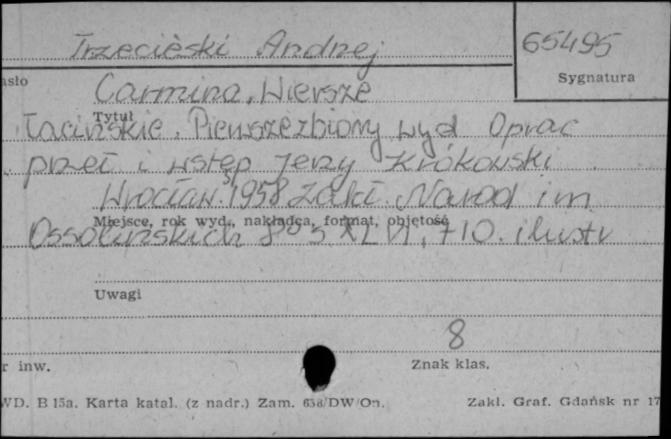 Trzecièski Andrzej
65495
asło
Sygnatura
Carmina, Wiersze
Tytuł
łacińskie. Pierwsze zbiory wyd Oprac
przeł i wstęp Jerzy Krókowski
Wrocław. 1958 Zakł. Narod im
Miejsce, rok wyd., nakładca, format, objętość
Ossolińskich 8° s XLVI, 710. ilustr
Uwagi
8
r inw.
Znak klas.
WD. B 15a. Karta katal. (z nadr.) Zam. 638/DW/On.
Zakl. Graf. Gdańsk nr 17